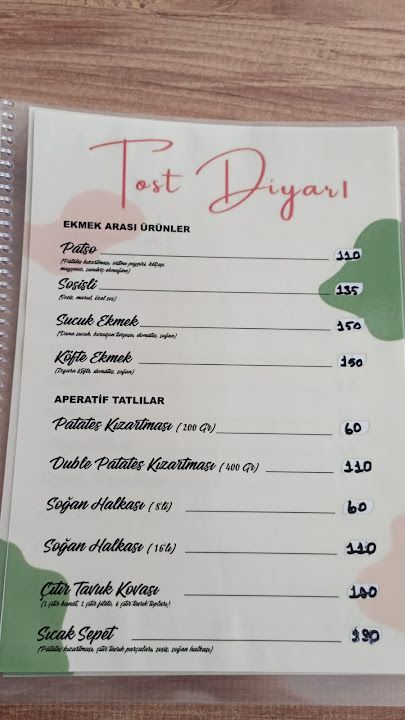 Tost Diyarı
EKMEK ARASI ÜRÜNLER
Patso 110
(Patates kızartması, eritme peyniri, ketçap,
mayonez, sandviç ekmeğine)
Sosisli 135
(Sosis, marul, özel sos)
Sucuk Ekmek 150
(Dana sucuk, kornişon turşusu, domates, soğan)
Köfte Ekmek 150
(Izgara Köfte, domates, soğan)
APERATİF TATLILAR
Patates Kızartması (200 Gr) 60
Duble Patates Kızartması (400 Gr) 110
Soğan Halkası (8'li) 60
Soğan Halkası (16'lı) 110
Çıtır Tavuk Kovası
çıtır kanat, 2 çıtır fileto, 6 çıtır tavuk topları)
Sıcak Sepet
(Patates kızartması, çıtır tavuk parçaları, sosis, soğan halkası)